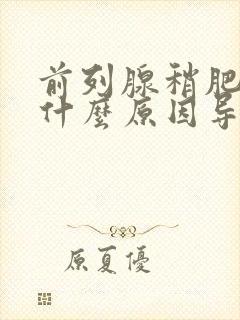 前列腺稍肥
什麼原因导
原夏優